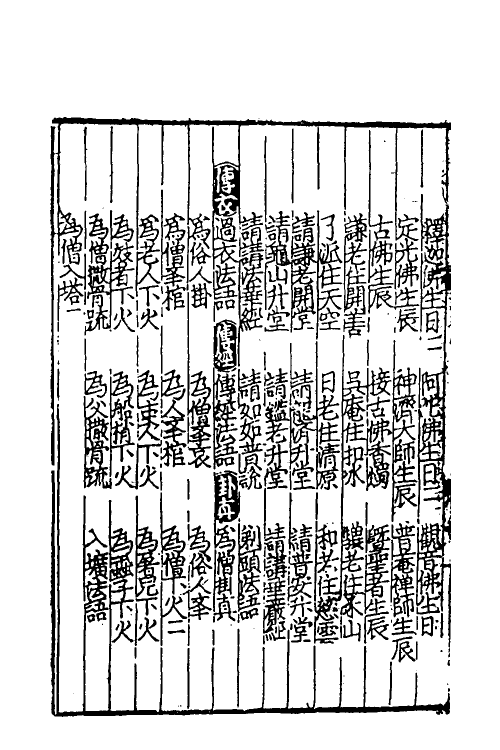 釋迦佛生日二　阿彌佛生日二　觀音佛生日
定光佛生辰　神濟大師生辰　普庵禪師生辰
古佛生辰　接古佛香燭　聖者生辰
謙老住開善　吳庵住扣水　老住山
了派住天空　日老住清原　和老住慈雲
請謙老開堂　請升堂　請普安升堂
請龜山升堂　請鑑老升堂　請講華嚴經
請講法華經　請如如普說　剃頭法語
傳衣　過衣法語　傳經　傳經法語　掛真　為僧掛真
為俗人掛　為僧舉哀　為俗人舉
為僧舉棺　為人舉棺　為僧下火二
為老人下火　為下火　為下火
為妓者下火　為船梢下火　為下火
為僧撒骨疏　為父撒骨疏　入壙法語
為僧入塔一